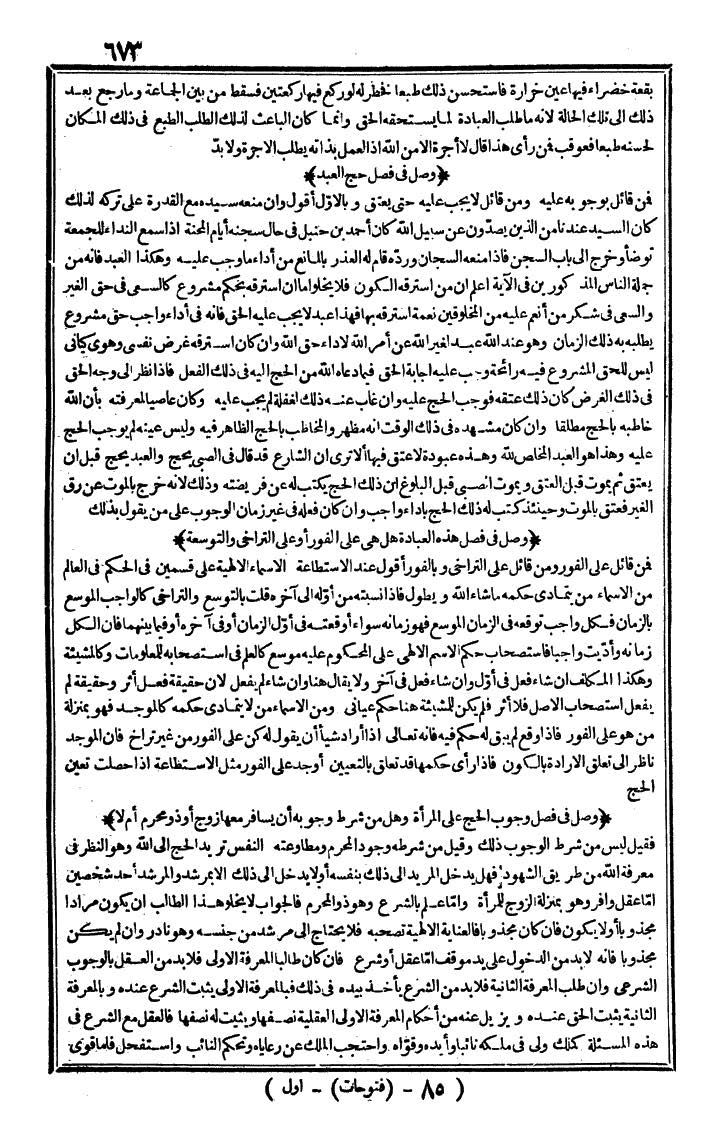 ٦٧٣
بقعة خضراء فيها عين خرارة فاستحسن ذلك طبعا فخطر له لو ركع فيها ركعتين فسقط من بين الجماعة وما رجع بعد
ذلك الى تلك الحالة لانه ما طلب العبادة لما يستحقه الحق وانما كان الباعث لذلك الطلب الطبع فى ذلك المكان
لحسنه طبعا فعوقب فمن رأى هذا قال لا أجرة الا من الله اذ العمل بذاته يطلب الاجرة ولا بد
﴿وصل فى فصل حج العبد﴾
فمن قائل بوجوبه عليه ومن قائل لا يجب عليه حتى يعتق وبالاول أقول وان منعه سيده مع القدرة على تركه لذلك
كان السيد عندنا من الذين يصدّون عن سبيل الله كان أحمد بن حنبل فى حال سجنه أيام المحنة اذا سمع النداء للجمعة
توضأ وخرج الى باب السجن فاذا منعه السجان وردّه قام له العذر بالمانع من أداء ما وجب عليه وهكذا العبد فانه من
جملة الناس المذكورين فى الآية اعلم ان من استرقه الكون فلا يخلو اما ان استرقه بحكم مشروع كالسعى فى حق الغير
والسعى فى شكر من أنعم عليه من المخلوقين نعمة استرقه بها فهذا عبد لا يجب عليه الحق فانه فى أداء واجب حق مشروع
يطلبه به ذلك الزمان وهو عند الله عبد لغير الله عن أمر الله لاداء حق الله وان كان استرقه غرض نفسى وهوى كيانى
ليس للحق المشروع فيه رائحة وجب عليه اجابة الحق فيما دعاه الله من الحج اليه فى ذلك الفعل فاذا نظر الى وجه الحق
فى ذلك الغرض كان ذلك عتقه فوجب الحج عليه وان غاب عنه ذلك لغفلة لم يجب عليه وكان عاصيا لمعرفته بأن الله
خاطبه بالحج مطلقا وان كان مشهده فى ذلك الوقت انه مظهر والمخاطب بالحج الظاهر فيه وليس عينه لم يوجب الحج
عليه وهذا هو العبد المخلص لله وهذه عبودة لا عتق فيها ألا ترى ان الشارع قد قال فى الصبى يحج والعبد يحج قبل ان
يعتق ثم يموت قبل العتق ويموت الصبى قبل البلوغ ان ذلك الحج يكتب له عن فريضته وذلك لانه خرج بالموت عن رق
الغير فعتق بالموت وحينئذ كتب له ذلك الحج باداء واجب وان كان فعله فى غير زمان الوجوب على من يقول بذلك
﴿وصل فى فصل هذه العبادة هل هى على الفور أو على التراخى والتوسعة﴾
فمن قائل على الفور ومن قائل على التراخى وبالفور أقول عند الاستطاعة الاسماء الالهية على قسمين فى الحكم فى العالم
من الاسماء من يتمادى حكمه ما شاء الله ويطول فاذا نسبته من أوّله الى آخره قلت بالتوسع والتراخى كالواجب الموسع
بالزمان فكل واجب توقعه فى الزمان الموسع فهو زمانه سواء أوقعته فى أوّل الزمان أو فى آخره أو فيما بينهما فان الكل
زمانه وأدّيت واجبا فاستصحاب حكم الاسم الالهى على المحكوم عليه موسع كالعلم فى استصحابه للمعلومات وكالمشيئة
وهكذا المكلف ان شاء فعل فى أوّل وان شاء فعل فى آخر ولا يقال هنا وان شاء لم يفعل لان حقيقة فعل أثر وحقيقة لم
يفعل استصحاب الاصل فلا أثر فلم يكن للمشيئة هنا حكم عيانى ومن الاسماء من لا يتمادى حكمه كالموجد فهو بمنزلة
من هو على الفور فاذا وقع لم يبق له حكم فيه فانه تعالى اذا أراد شيأ أن يقول له كن على الفور من غير تراخ فان الموجد
ناظر الى تعلق الارادة بالكون فاذا رأى حكمها قد تعلق بالتعيين أوجد على الفور مثل الاستطاعة اذا حصلت تعين
الحج
﴿وصل فى فصل وجوب الحج على المرأة وهل من شرط وجوبه أن يسافر معها زوج أو ذو محرم أم لا﴾
فقيل ليس من شرط الوجوب ذلك وقيل من شرطه وجود المحرم ومطاوعته النفس تريد الحج الى الله وهو النظر فى
معرفة الله من طريق الشهود فهل يدخل المريد الى ذلك بنفسه أو لا يدخل الى ذلك الا بمرشد والمرشد أحد شخصين
امّا عقل وافر وهو بمنزلة الزوج للمرأة وامّا علم بالشرع وهو ذو المحرم فالجواب لا يخلو هذا الطالب ان يكون مرادا
مجذوبا أو لا يكون فان كان مجذوبا فالعناية الالهية تصحبه فلا يحتاج الى مرشد من جنسه وهو نادر وان لم يكن
مجذوبا فانه لا بد من الدخول على يد موقف امّا عقل أو شرع فان كان طالبا المعرفة الاولى فلا بد من العقل بالوجوب
الشرعى وان طلب المعرفة الثانية فلا بد من الشرع يأخذ بيده فى ذلك فبالمعرفة الاولى يثبت الشرع عنده وبالمعرفة
الثانية يثبت الحق عنده ويزيل عنه من أحكام المعرفة الاولى العقلية نصفها ويثبت له نصفها فالعقل مع الشرع فى
هذه المسئلة كملك ولى فى ملكه نائبا وأيده وقوّاه واحتجب الملك عن رعاياه وتحكم النائب واستفحل فلما قوى
( ٨٥ - (فتوحات) - اول )